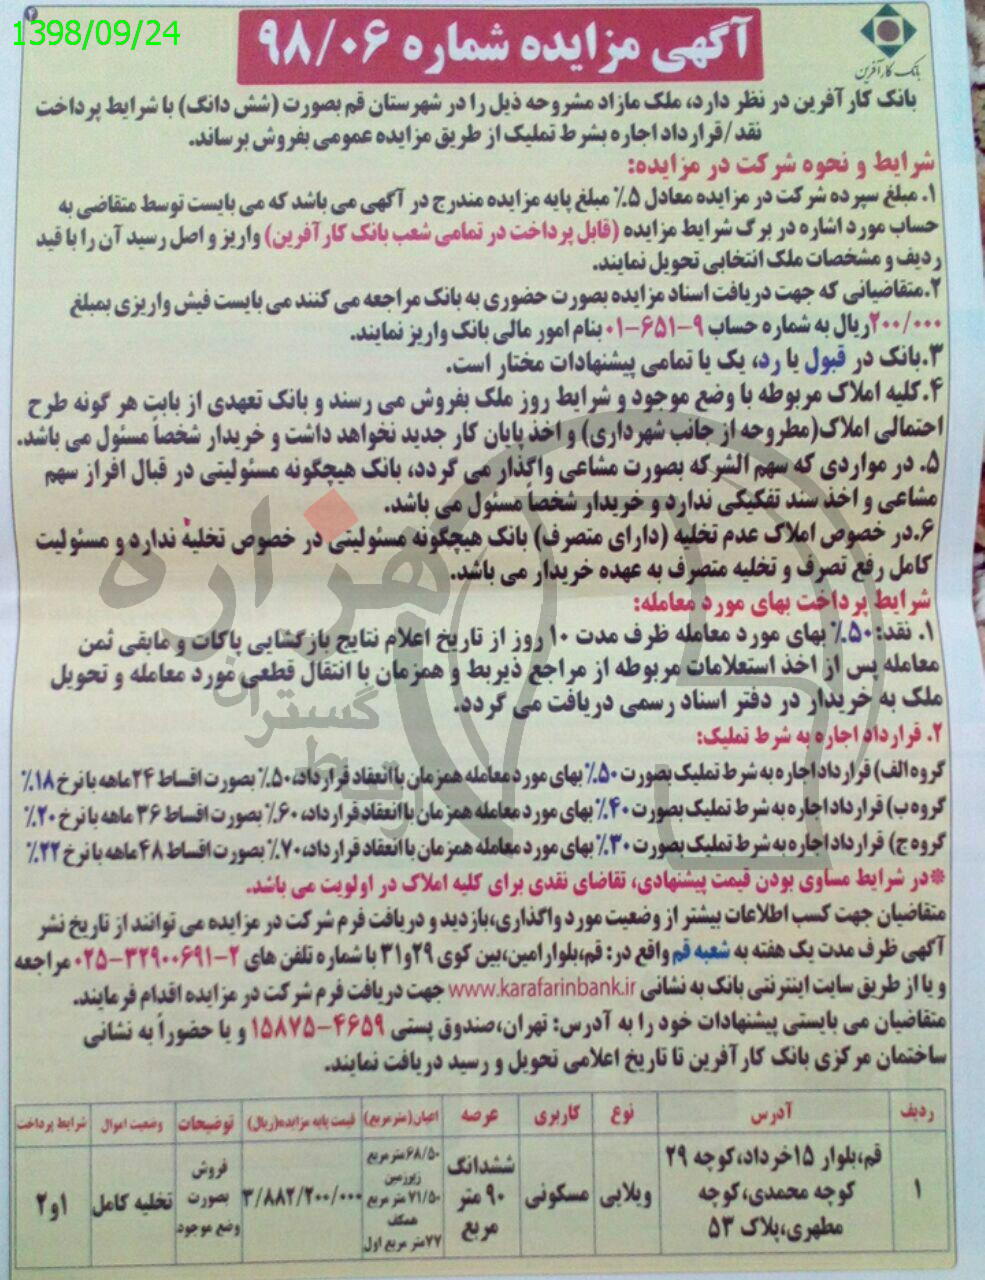 1398/09/24
۲
آگهی مزایده شماره ۹۸/۰۶
بانک کارآفرین
بانک کارآفرین در نظر دارد، ملک مازاد مشروحه ذیل را در شهرستان قم بصورت (شش دانگ) با شرایط پرداخت
نقد/قرارداد اجاره بشرط تملیک از طریق مزایده عمومی بفروش برساند.
شرایط و نحوه شرکت در مزایده:
۱. مبلغ سپرده شرکت در مزایده معادل ۵٪ مبلغ پایه مزایده مندرج در آگهی می باشد که می بایست توسط متقاضی به
حساب مورد اشاره در برگ شرایط مزایده (قابل پرداخت در تمامی شعب بانک کارآفرین) واریز و اصل رسید آن را با قید
ردیف و مشخصات ملک انتخابی تحویل نمایند.
۲.متقاضیانی که جهت دریافت اسناد مزایده بصورت حضوری به بانک مراجعه می کنند می بایست فیش واریزی بمبلغ
۲۰۰/۰۰۰ریال به شماره حساب ۹-۶۵۱-۰۱ بنام امور مالی بانک واریز نمایند.
۳.بانک در قبول یا رد، یک یا تمامی پیشنهادات مختار است.
۴.کلیه املاک مربوطه با وضع موجود و شرایط روز ملک بفروش می رسند و بانک تعهدی از بابت هر گونه طرح
احتمالی املاک(مطروحه از جانب شهرداری) و اخذ پایان کار جدید نخواهد داشت و خریدار شخصاً مسئول می باشد.
۵. در مواردی که سهم الشرکه بصورت مشاعی واگذار می گردد، بانک هیچگونه مسئولیتی در قبال افراز سهم
مشاعی و اخذ سند تفکیکی ندارد و خریدار شخصاً مسئول می باشد.
۶.در خصوص املاک عدم تخلیه (دارای متصرف) بانک هیچگونه مسئولیتی در خصوص تخلیه ندارد و مسئولیت
کامل رفع تصرف و تخلیه متصرف به عهده خریدار می باشد.
شرایط پرداخت بهای مورد معامله:
۱. نقد: ۵۰٪ بهای مورد معامله ظرف مدت ۱۰ روز از تاریخ اعلام نتایج بازگشایی پاکات و مابقی ثمن
معامله پس از اخذ استعلامات مربوطه از مراجع ذیربط و همزمان با انتقال قطعی مورد معامله و تحویل
ملک به خریدار در دفتر اسناد رسمی دریافت می گردد.
۲. قرارداد اجاره به شرط تملیک:
گروه الف) قرارداد اجاره به شرط تملیک بصورت ۵۰٪ بهای مورد معامله همزمان با انعقاد قرارداد، ۵۰٪ بصورت اقساط ۲۴ ماهه با نرخ ۱۸٪
گروه ب) قرارداد اجاره به شرط تملیک بصورت ۴۰٪ بهای مورد معامله همزمان با انعقاد قرارداد، ۶۰٪ بصورت اقساط ۳۶ ماهه با نرخ ۲۰٪
گروه ج) قرارداد اجاره به شرط تملیک بصورت ۳۰٪ بهای مورد معامله همزمان با انعقاد قرارداد، ۷۰٪ بصورت اقساط ۴۸ ماهه با نرخ ۲۲٪
*در شرایط مساوی بودن قیمت پیشنهادی، تقاضای نقدی برای کلیه املاک در اولویت می باشد.
متقاضیان جهت کسب اطلاعات بیشتر از وضعیت مورد واگذاری،بازدید و دریافت فرم شرکت در مزایده می توانند از تاریخ نشر
آگهی ظرف مدت یک هفته به شعبه قم واقع در: قم،بلوارامین،بین کوی ۲۹و۳۱ با شماره تلفن های ۲-۳۲۹۰۰۶۹۱-۰۲۵ مراجعه
و یا از طریق سایت اینترنتی بانک به نشانی www.karafarinbank.ir جهت دریافت فرم شرکت در مزایده اقدام فرمایند.
متقاضیان می بایستی پیشنهادات خود را به آدرس: تهران،صندوق پستی ۴۶۵۹-۱۵۸۷۵ و یا حضوراً به نشانی
ساختمان مرکزی بانک کارآفرین تا تاریخ اعلامی تحویل و رسید دریافت نمایند.
ردیف آدرس نوع کاربری عرصه اعیان(مترمربع) قیمت پایه مزایده(ریال) توضیحات وضعیت اموال شرایط پرداخت
۱ قم،بلوار ۱۵خرداد،کوچه ۲۹ کوچه محمدی،کوچه مطهری،پلاک ۵۳ ویلایی مسکونی ششدانگ ۹۰ متر مربع ۶۸/۵۰مترمربع زیرزمین ۷۱/۵۰ متر مربع همکف ۷۷متر مربع اول ۳/۸۸۲/۲۰۰/۰۰۰ فروش بصورت وضع موجود تخلیه کامل ۱و۲
هزاره
گستران